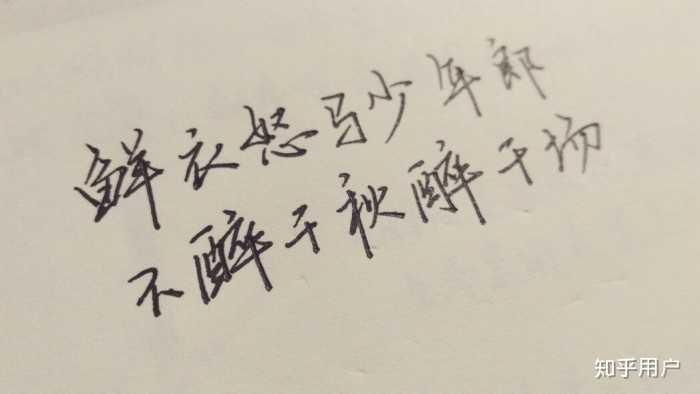 鲜衣怒马少年郎
不醉千秋醉千场
知乎用户